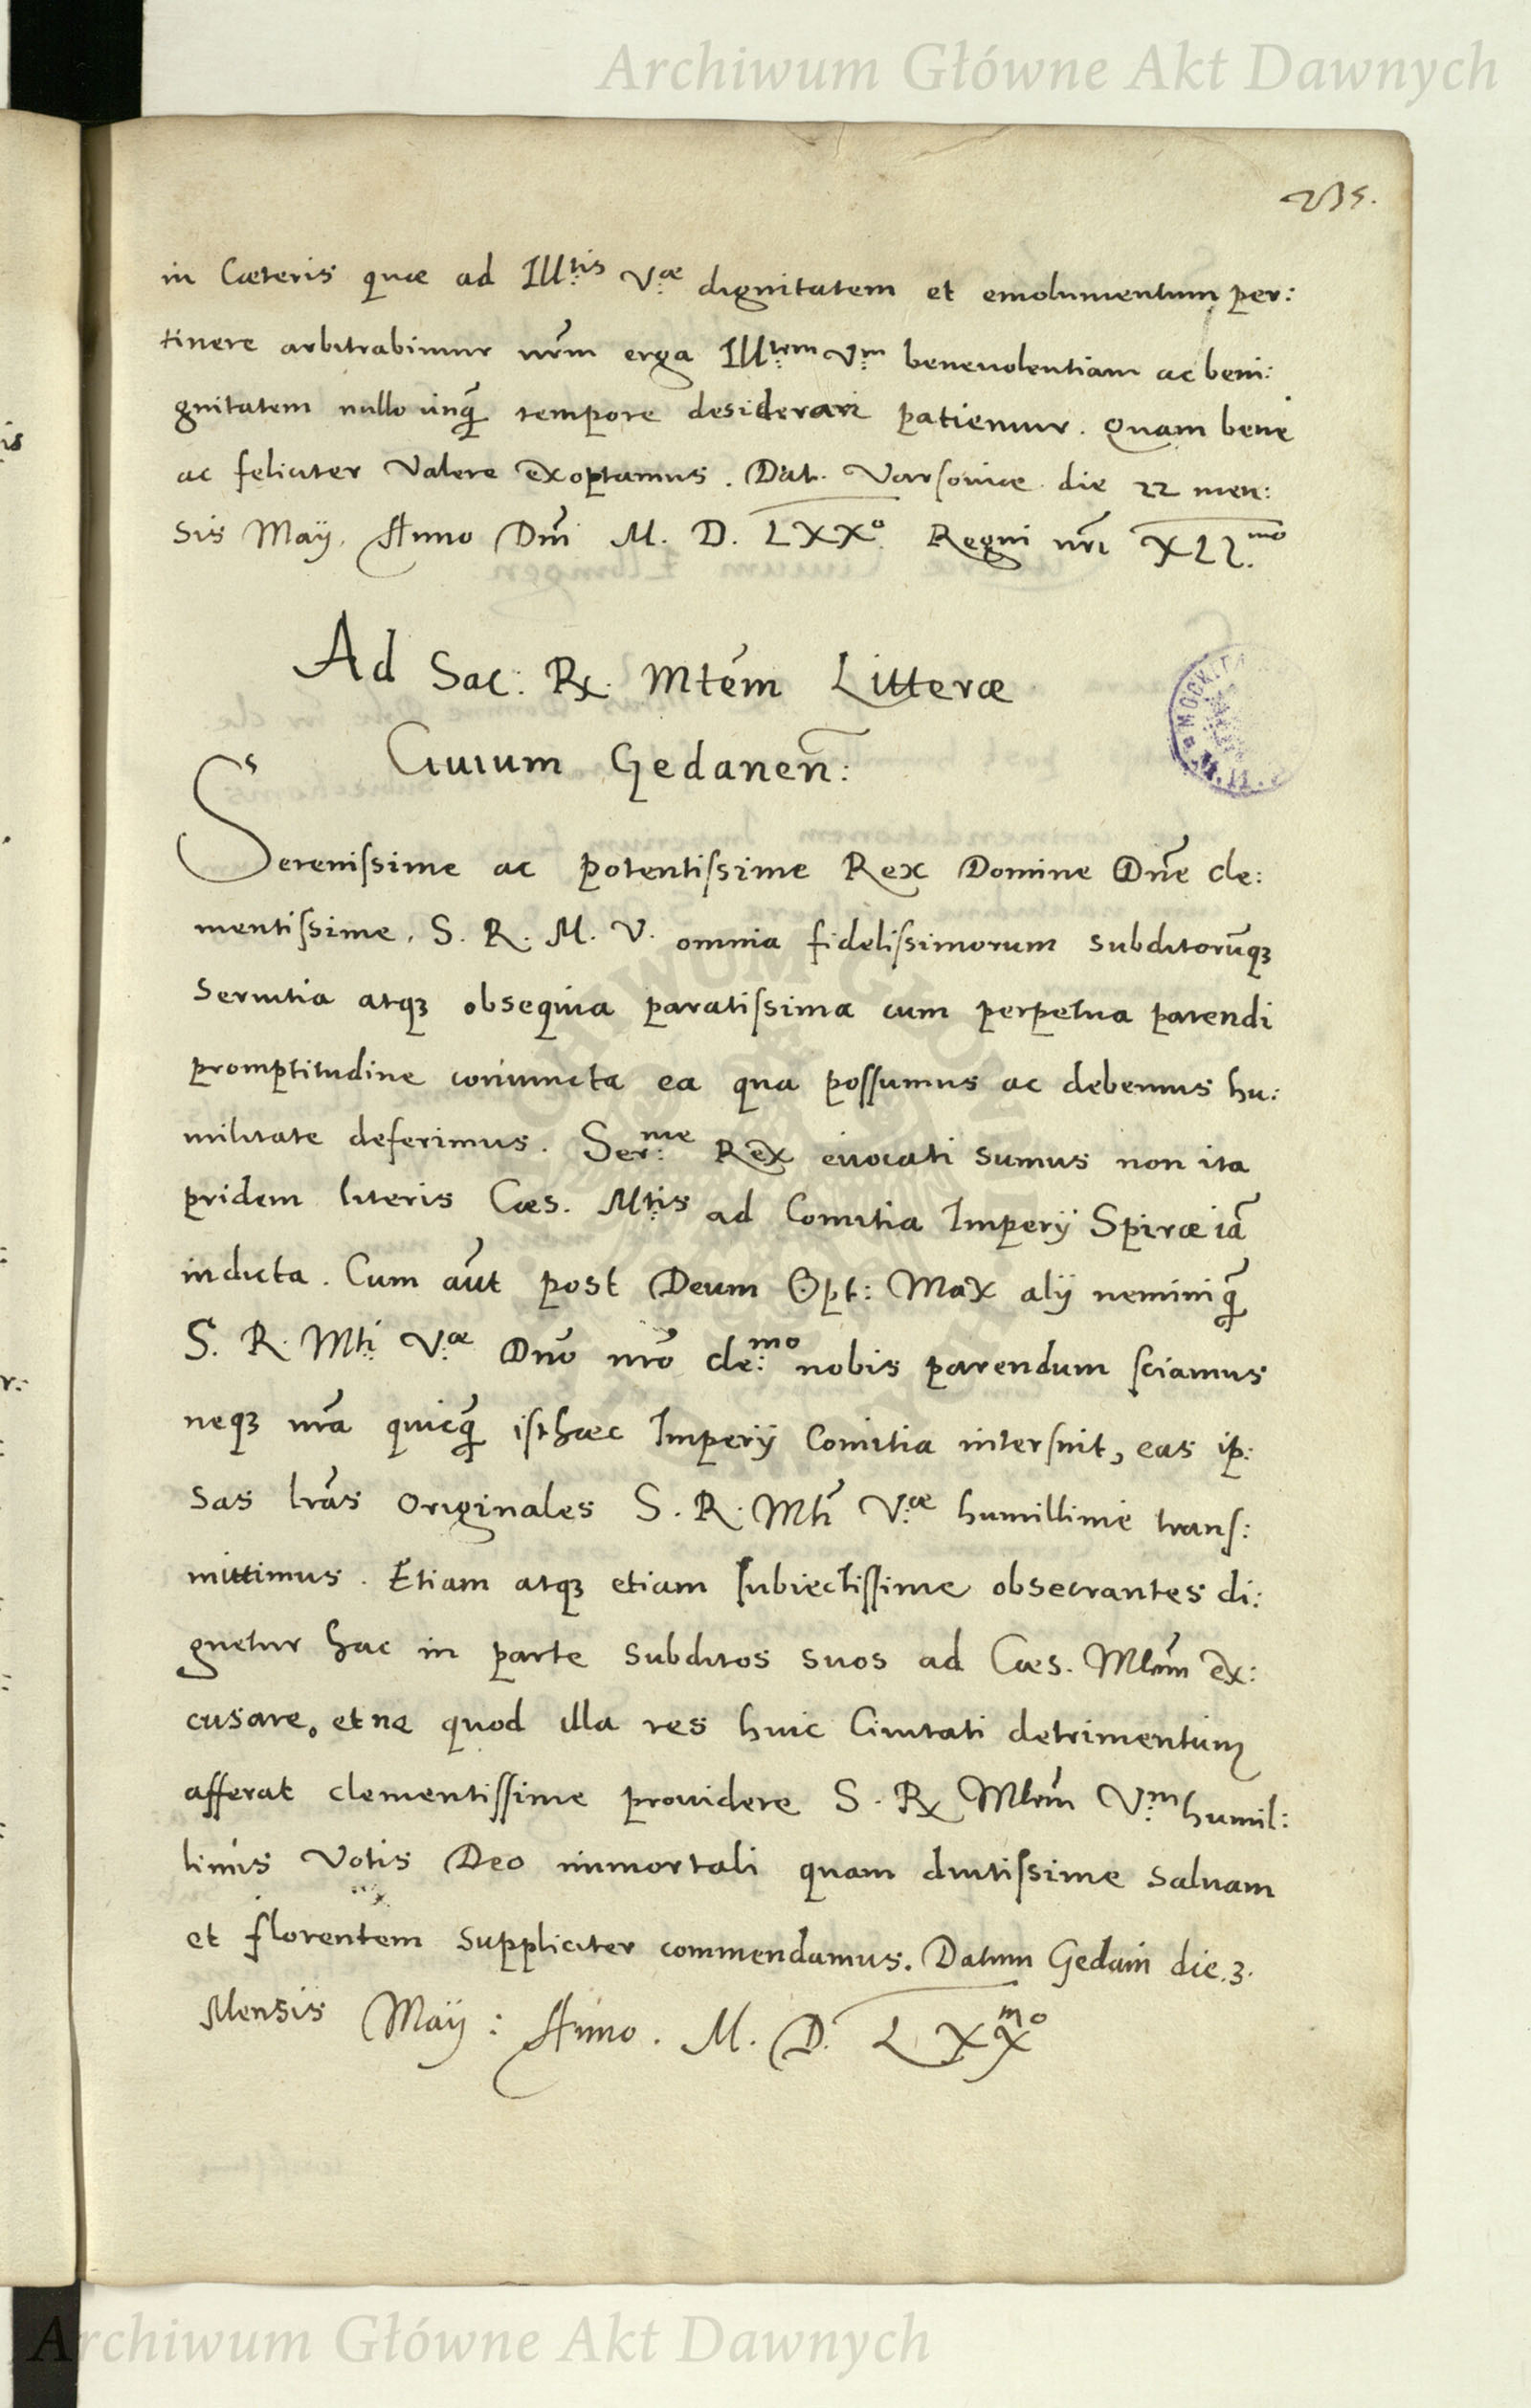 Archiwum Główne Akt Dawnych
235.
in Cæteris quæ ad Ill:tis V:æ dignitatem et emolumentum per:
tinere arbitrabimur nr̃m erga Ill:tem V:m beneuolentiam ac beni:
gnitatem nullo unq̃ tempore desiderari patiemur. Quam bene
ac feliciter Valere exoptamus. Dat. Varsouiæ die 22 men:
sis Maij. Anno Dñi M. D. LXX° Regni nr̃i XLI.mo
Ad Sac: Rx. Mtẽm Litteræ
Ciuium Gedanen̄:
Serenissime ac potentissime Rex Domine Dñe cle:
mentissime. S. R. M. V. omnia fidelissimorum subditorũqꝫ
seruitia atqꝫ obsequia paratissima cum perpetua parendi
promptitudine coniuncta ea qua possumus ac debemus hu:
militate deferimus. Ser:me Rex euocati sumus non ita
pridem literis Cæs. Mtis ad Comitia Imperij Spiræ iã
indicta. Cum aũt post Deum Opt: Max alij neminiq̃
S. R. Mti V:æ Dño nr̃o cle:mo nobis parendum sciamus
neqꝫ nr̃a quicq̃ isthæc Imperij Comitia intersuit, eas ip:
sas lr̃as originales S. R. Mti V:æ humillime trans:
mittimus. Etiam atqꝫ etiam subiectissime obsecrantes di:
gnetur hac in parte subditos suos ad Cæs. Mtem ex:
cusare, et ne quod illa res huic Ciuitati detrimentum
afferat clementissime prouidere S. Rx Mtem V:m humil:
limis Votis Deo immortali quam diutissime saluam
et florentem suppliciter commendamus. Datum Gedani die. 3.
Mensis Maij: Anno. M. D. LXX mo
Archiwum Główne Akt Dawnych